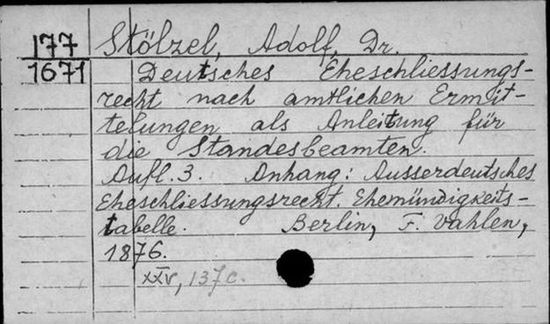 177 Stölzel, Adolf, Dr.
1671 Deutsches Eheschliessungs-
recht nach amtlichen Ermit-
telungen als Anleitung für
die Standesbeamten.
Aufl. 3. Anhang: Ausserdeutsches
Eheschliessungsrecht. Ehemündigkeits-
tabelle. Berlin, F. Vahlen,
1876.
XXV, 137 c.